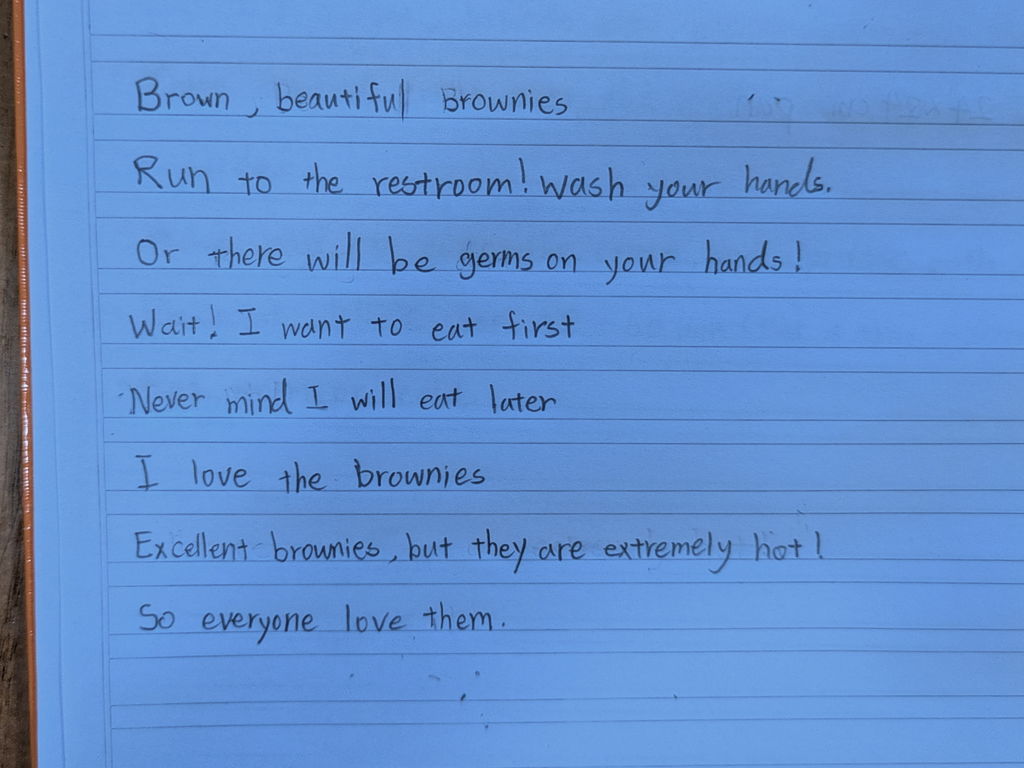 Brown, beautiful Brownies
Run to the restroom! Wash your hands.
Or there will be germs on your hands!
Wait! I want to eat first
Never mind I will eat later
I love the brownies
Excellent brownies, but they are extremely hot!
So everyone love them.